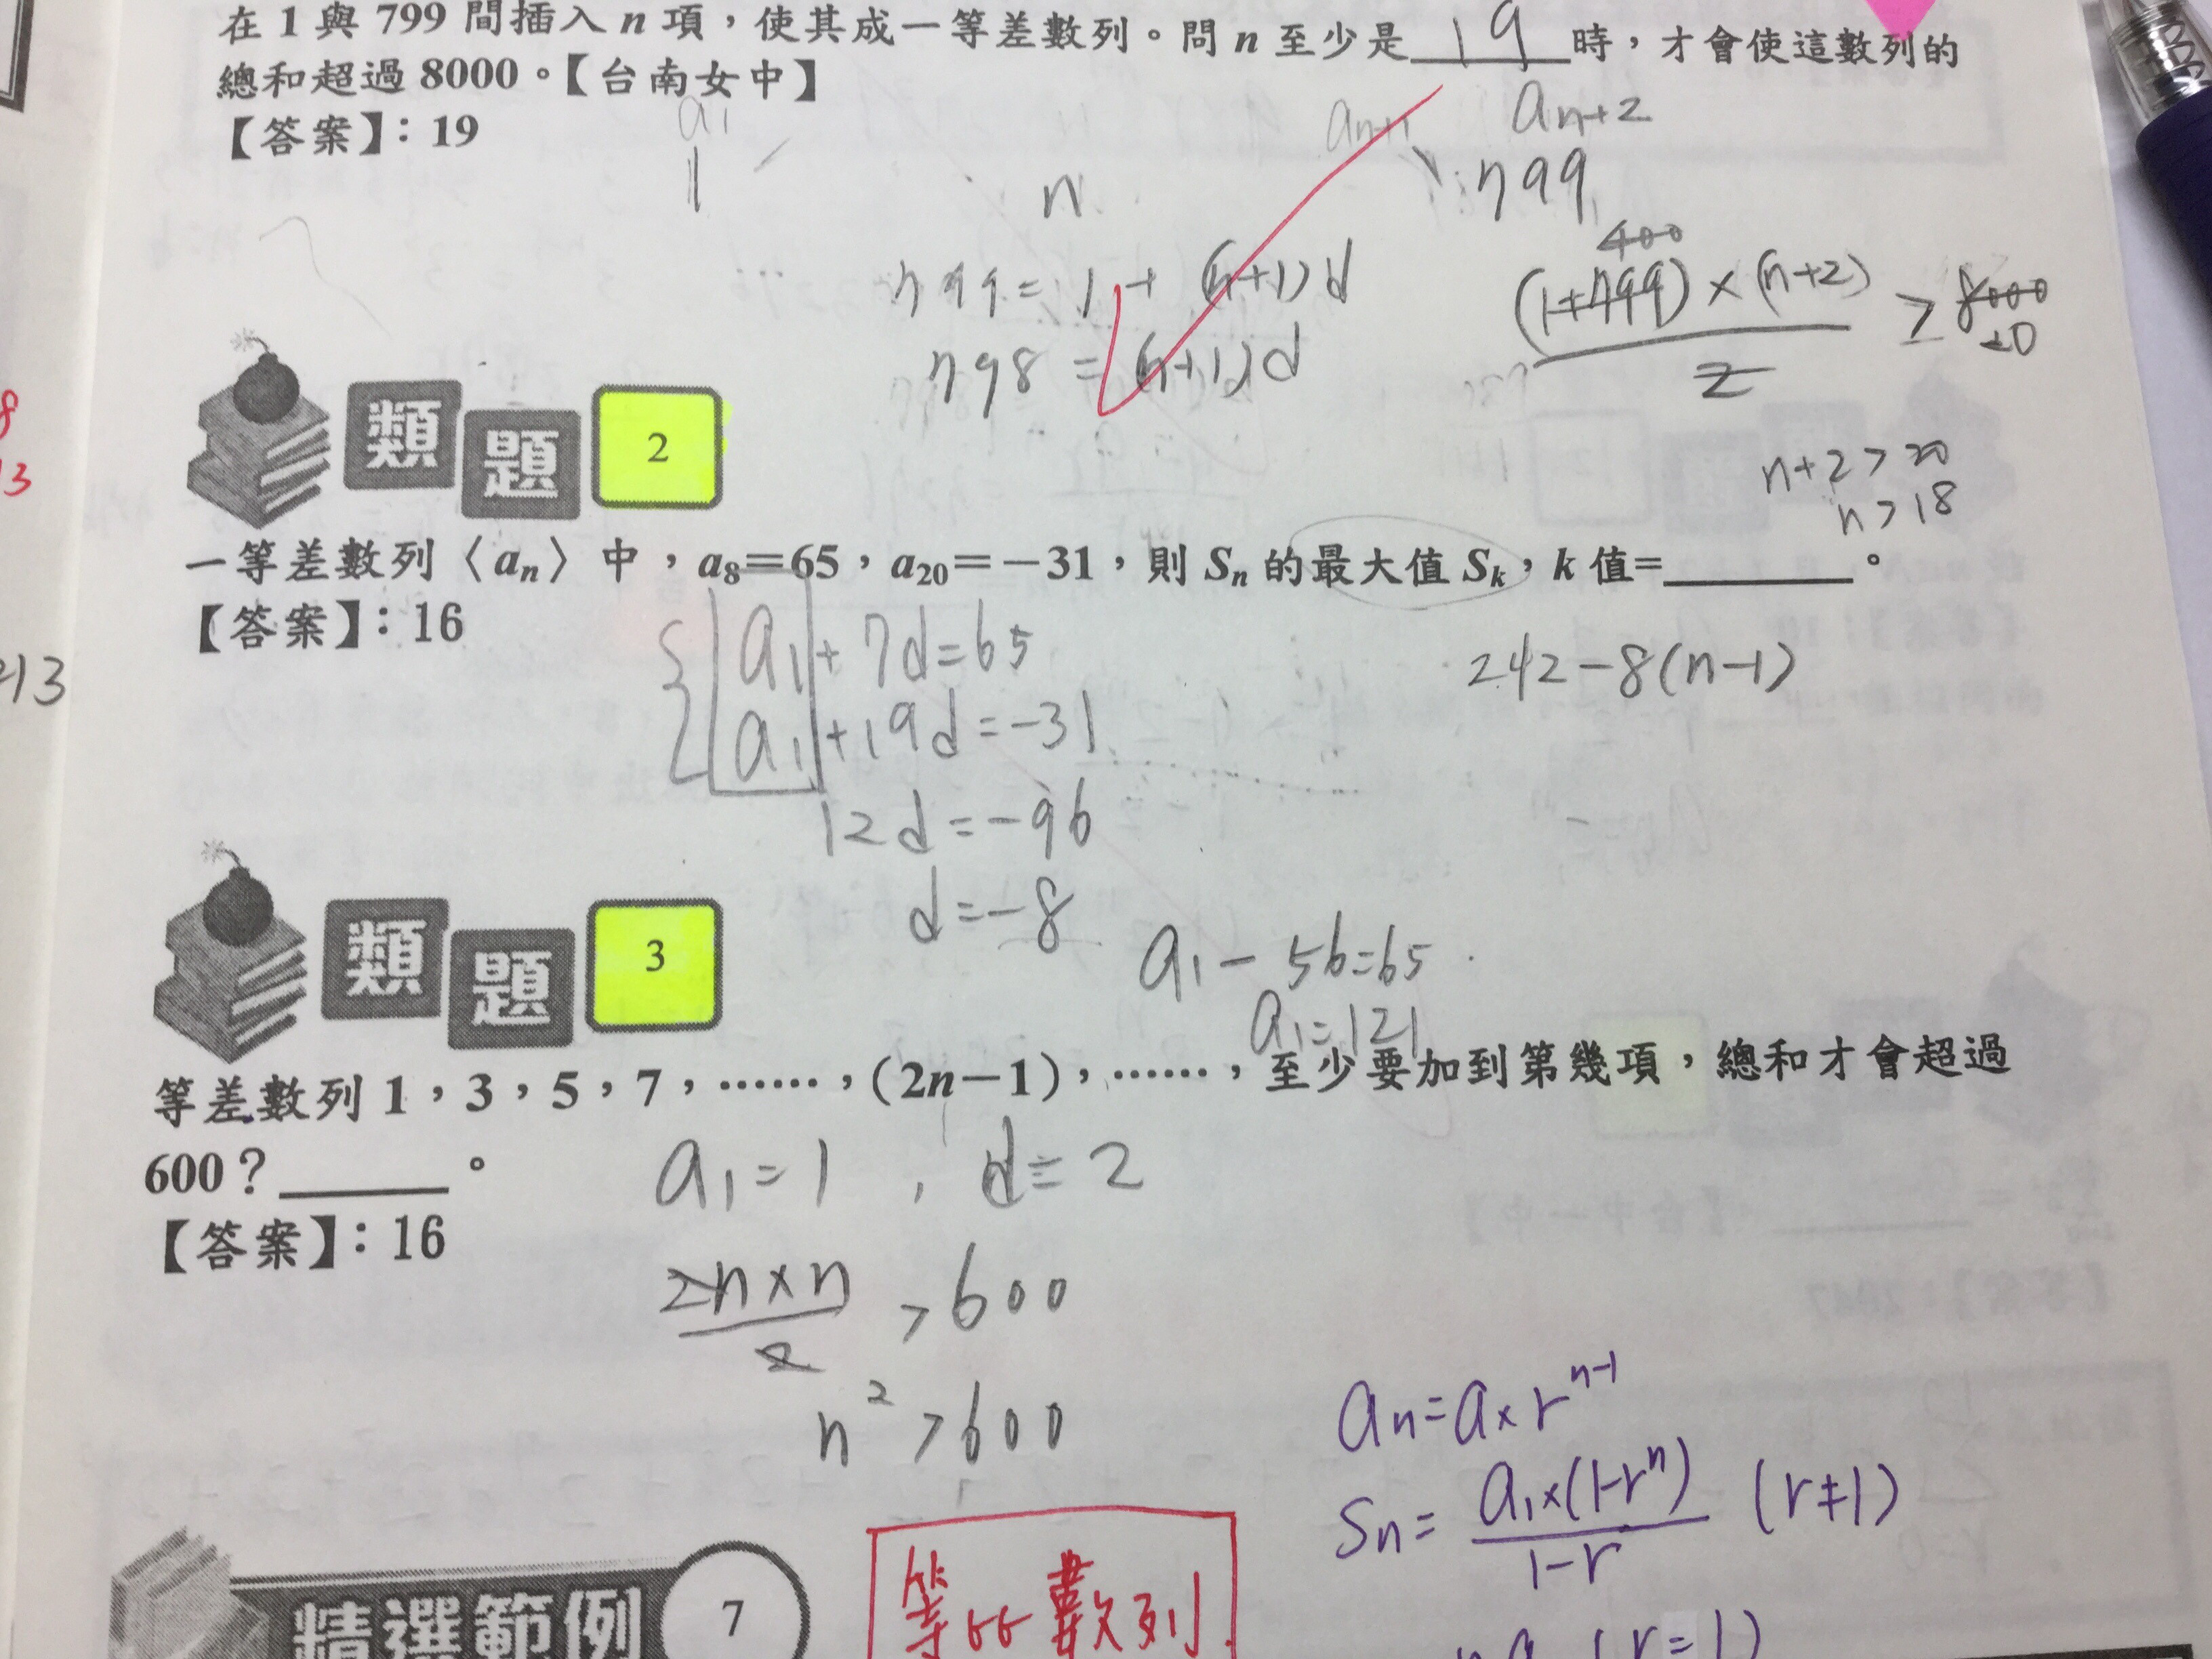 在 1 與 799 間插入 n 項，使其成一等差數列。問 n 至少是 19 時，才會使這數列的
總和超過 8000。【台南女中】
【答案】：19
a₁
aₙ₊₁
aₙ₊₂
1
n
799
799 = 1 + (n+1)d
798 = (n+1)d
400
(1+799)×(n+2) / 2 > 8000
20
n+2 > 20
n > 18
類題 2
一等差數列〈aₙ〉中，a₈＝65，a₂₀＝－31，則 Sₙ 的最大值 Sₖ，k 值=______。
【答案】：16
a₁ + 7d = 65
a₁ + 19d = -31
12d = -96
d = -8
242 - 8(n-1)
a₁ - 56 = 65
a₁ = 121
類題 3
等差數列 1，3，5，7，……，(2n－1)，……，至少要加到第幾項，總和才會超過
600？______。
【答案】：16
a₁ = 1 , d = 2
2n×n / 2 > 600
n² > 600
aₙ = a × rⁿ⁻¹
Sₙ = a₁×(1-rⁿ) / 1-r (r≠1)
(r=1)
精選範例 7
等比數列
8
13
213